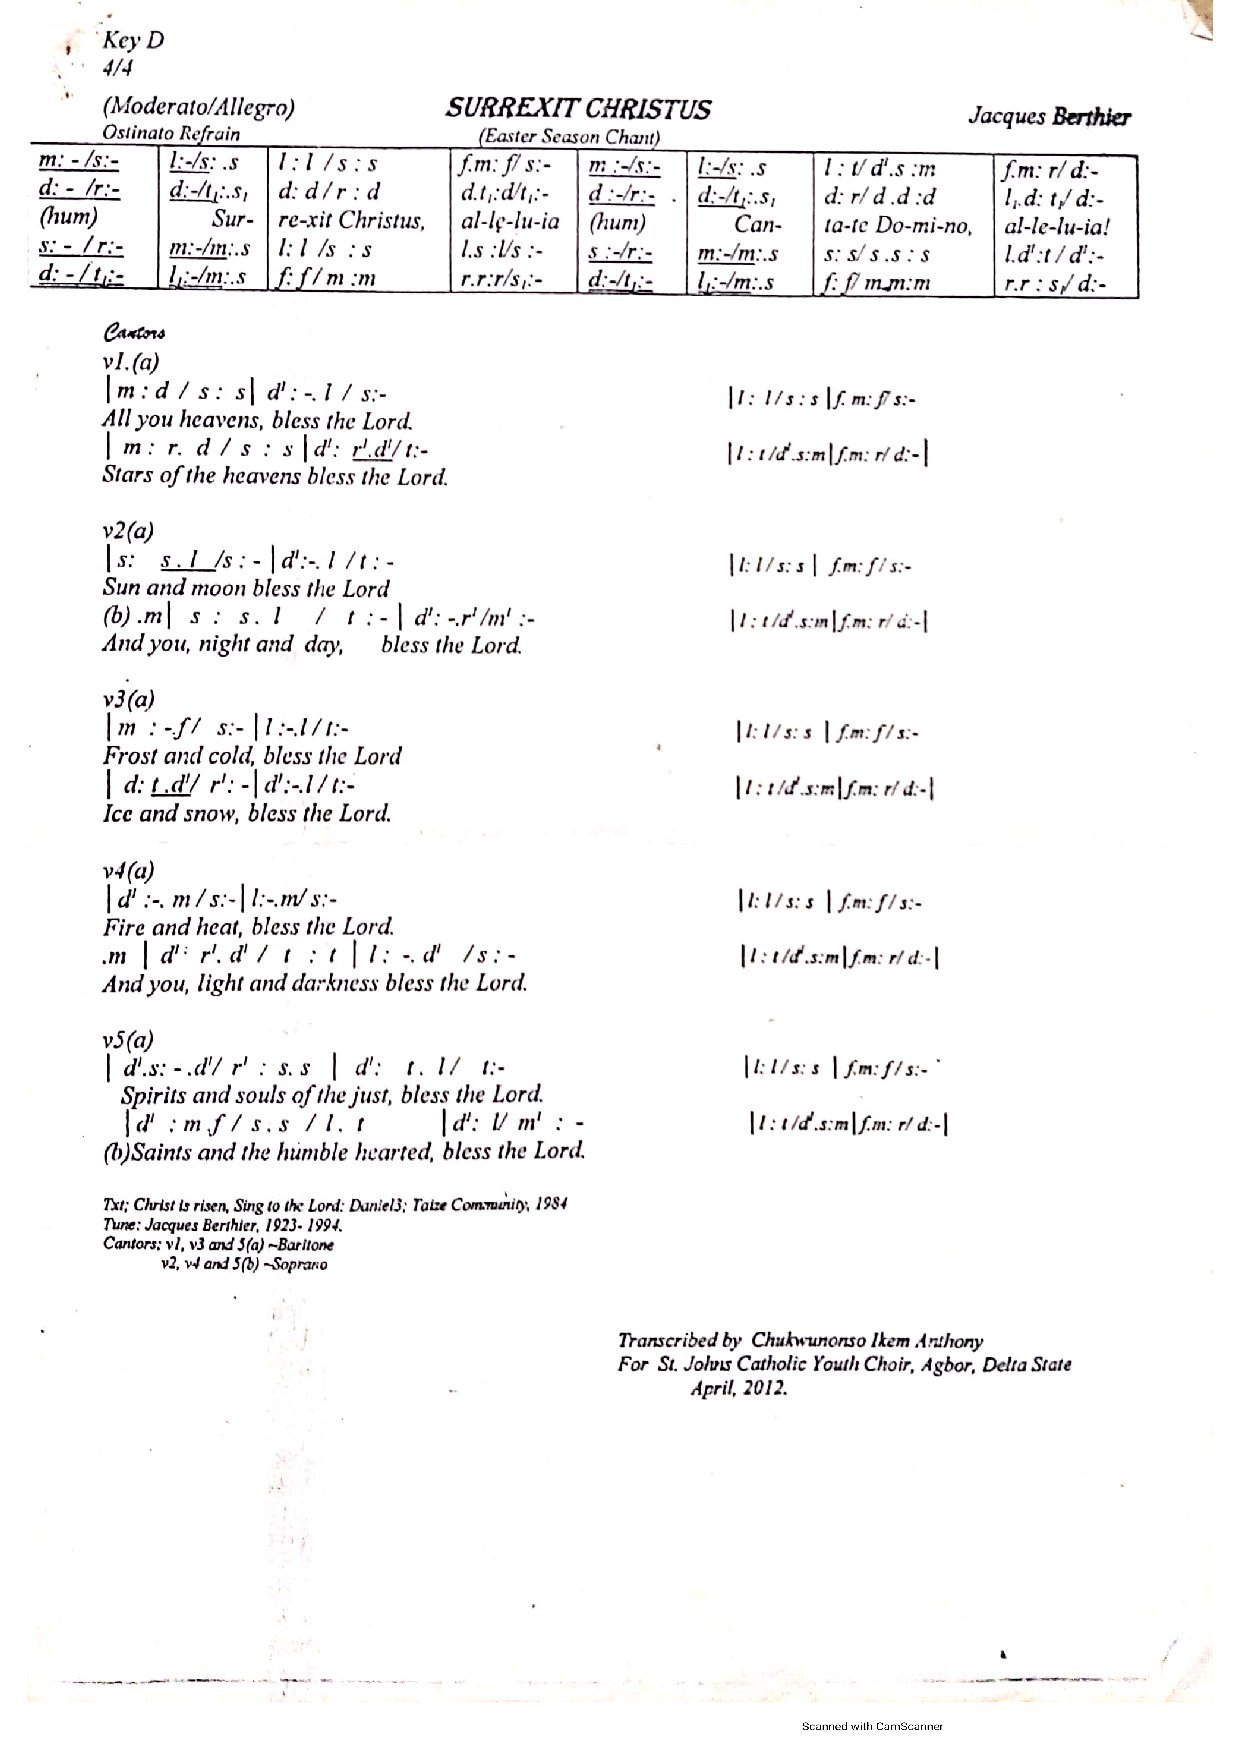 Key D
4/4
(Moderato/Allegro) SURREXIT CHRISTUS Jacques Berthier
Ostinato Refrain (Easter Season Chant)
m: - /s:- | l:-/s: .s | l : l / s : s | f.m: f/ s:- | m :-/s:- | l:-/s: .s | l : t/ d'.s :m | f.m: r/ d:-
d: - /r:- | d:-/t₁:.s₁ | d: d / r : d | d.t₁:d/t₁:- | d :-/r:- . | d:-/t₁:.s₁ | d: r/ d .d :d | l₁.d: t₁/ d:-
(hum) | Sur- | re-xit Christus, | al-le-lu-ia | (hum) | Can- | ta-te Do-mi-no, | al-le-lu-ia!
s: - / r:- | m:-/m:.s | l: l /s : s | l.s :l/s :- | s :-/r:- | m:-/m:.s | s: s/ s .s : s | l.d':t / d':-
d: - / t₁:- | l₁:-/m:.s | f: f / m :m | r.r:r/s₁:- | d:-/t₁:- | l₁:-/m:.s | f: f/ m.m:m | r.r : s₁/ d:-
Cantors
v1.(a)
| m : d / s : s| d' : -. l / s:- |l : l/s : s |f. m: f/ s:-
All you heavens, bless the Lord.
| m : r. d / s : s |d': r'.d'/ t:- |l : t/d'.s:m|f.m: r/ d:-|
Stars of the heavens bless the Lord.
v2(a)
|s: s . l /s : - |d':-. l / t : - |l: l/s: s | f.m: f/ s:-
Sun and moon bless the Lord
(b) .m| s : s . l / t : - | d': -.r'/m' :- |l : t/d'.s:m|f.m: r/ d:-|
And you, night and day, bless the Lord.
v3(a)
|m : -.f / s:- |l :-.l / t:- |l: l/s: s | f.m: f/ s:-
Frost and cold, bless the Lord
| d: t .d'/ r': -|d':-.l / t:- |l : t/d'.s:m|f.m: r/ d:-|
Ice and snow, bless the Lord.
v4(a)
|d' :-. m / s:-|l:-.m/ s:- |l: l/s: s | f.m: f/ s:-
Fire and heat, bless the Lord.
.m | d': r'. d' / t : t | l : -. d' /s : - |l : t/d'.s:m|f.m: r/ d:-|
And you, light and darkness bless the Lord.
v5(a)
| d'.s: - .d'/ r' : s. s | d': t . l / t:- |l: l/s: s | f.m: f/ s:-
Spirits and souls of the just, bless the Lord.
|d' : m.f / s . s / l . t |d': l/ m' : - |l : t/d'.s:m|f.m: r/ d:-|
(b)Saints and the humble hearted, bless the Lord.
Txt; Christ is risen, Sing to the Lord: Daniel3; Taize Community, 1984
Tune: Jacques Berthier, 1923- 1994.
Cantors: v1, v3 and 5(a) ~Baritone
v2, v4 and 5(b) ~Soprano
Transcribed by Chukwunonso Ikem Anthony
For St. Johns Catholic Youth Choir, Agbor, Delta State
April, 2012.
Scanned with CamScanner